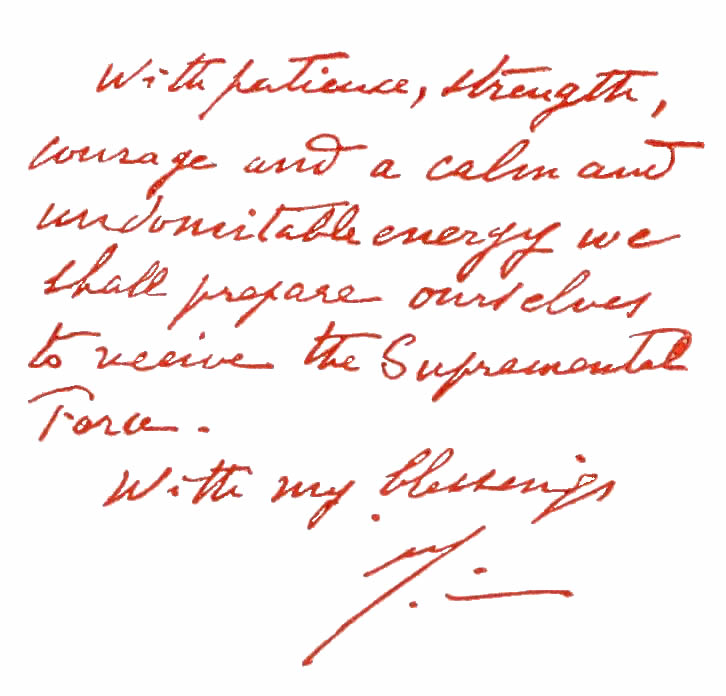 With patience, strength,
courage and a calm and
undomitable energy we
shall prepare ourselves
to receive the Supramental
Force.
With my blessings